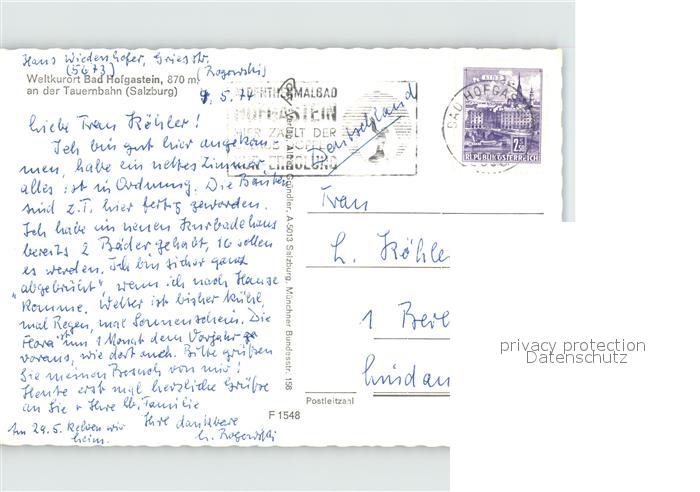 Haus Wiedenhofer, Griesstr.
(5673) (Rogowski)
Weltkurort Bad Hofgastein, 870 m
an der Tauernbahn (Salzburg)
9.5.74
Liebe Frau Köhler!
Ich bin gut hier angekom-
men, habe ein nettes Zimmer,
alles ist in Ordnung. Die Bauten
sind z.T. hier fertig geworden.
Ich habe im neuen Kurbadehaus
bereits 2 Bäder gehabt, 16 sollen
es werden. Ich bin sicher ganz
"abgebrüht" wenn ich nach Hause
komme. Wetter ist bisher kühl,
mal Regen, mal Sonnenschein. Die
Flora um 1 Monat dem Vorjahr
voraus, wie dort auch. Bitte grüßen
Sie meinen Besuch von mir!
Heute erst mal herzliche Grüße
an Sie + Ihre lb. Familie
Ihre dankbare
Am 29.5. kehren wir
heim. L. Rogowski
Verlag Albert Gründler, A-5013 Salzburg, Münchner Bundesstr. 158
F 1548
THERMALBAD
HOFGASTEIN
HIER ZÄHLT DER
ERHOLUNG
Deutschland
BAD HOFGASTEIN
REPUBLIK ÖSTERREICH
Frau
L. Köhle
1 Berl
Lindau
Postleitzahl
privacy protection
Datenschutz